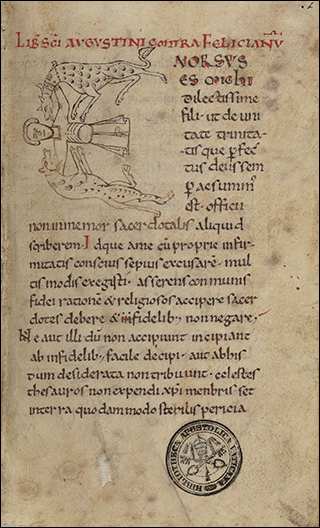 LIB SCI AUGUSTINI CONTRA FELICIANŪ
NORSUS
ES MIChI
dilectissime
fili · ut de uni
tate trinita
tis que pfec
tus deessem
p
est · officii
non inmemor sacerdotalis aliquid
scriberem · Idque a me cū proprie infir
mitatis conscius sepius excusarē · mul
tis modis exegisti · asserens communis
fidei rationē & religiosos accipere sacer
dotes debere & infidelib; non negare ·
Ne aut illi dū non accipiunt incipiant
ab infidelib; facile decipi · aut ab his
dum desiderata non tribuunt · celestes
thesauros non expendi xpi menbris set
in terra quodammodo sterilis pericia
BIBLIOTHECA APOSTOLICA VATICANA